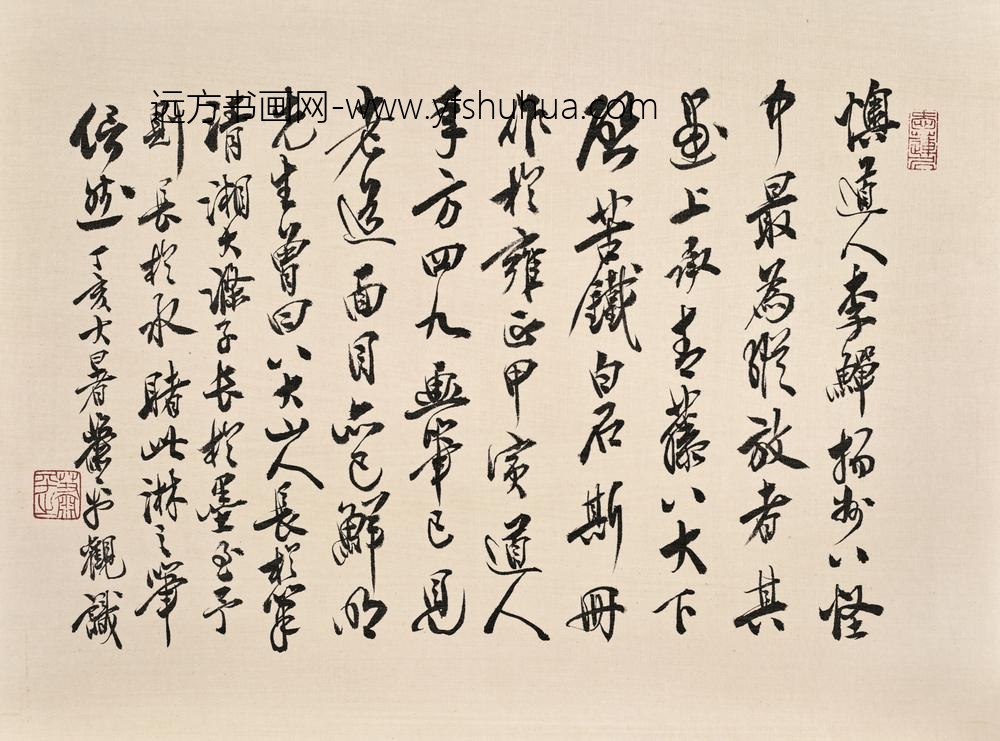 远方书画网-www.yfshuhua.com
懊道人李鱓揚州八怪
中最為縱放者其
畫上承青藤八大下
啟苦鐵白石斯冊
作於雍正甲寅道人
年方四九畫筆已見
老面目亦已鮮明
先生曾曰八大山人長於筆
清湘大滌子長於墨至予
則長於水睹此淋之筆
信然 丁亥大暑蕭平觀識